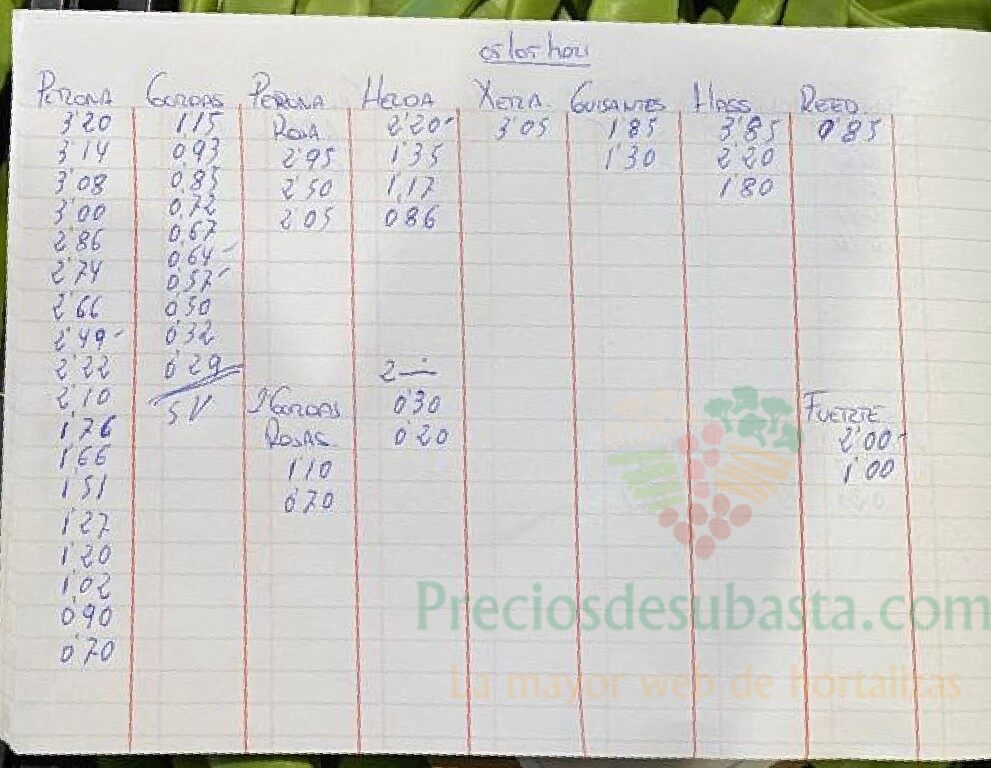 05/05/2021
PERONA GORDAS PERONA HELDA XERA. GUISANTES HASS REED.
3'20 1'15 ROJA. 2'20- 3'05 1'85 3'85 0'85
3'14 0'93 2'95 1'35 1'30 2'20
3'08 0'85 2'50 1'17 1'80
3'00 0'72 2'05 0'86
2'86 0'67
2'74 0'64-
2'66 0'57-
2'49- 0'50
2'22 0'32
2'10 0'29 2
1'76 SV GORDAS 0'30 FUERTE
1'66 ROJAS 0'20 2'00-
1'51 1'10 1'00
1'27 0'70
1'20
1'02
0'90
0'70
Preciosdesubasta.com
La mayor web de hortalizas